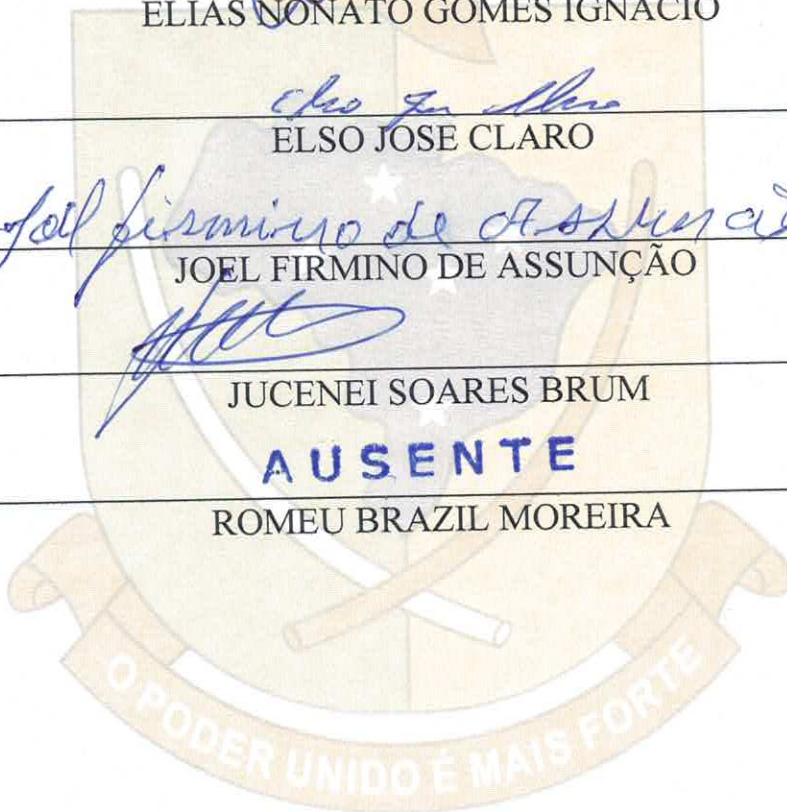 ELIAS NONATO GOMES IGNACIO
ELSO JOSE CLARO
Joel firmino de Assunção
JOEL FIRMINO DE ASSUNÇÃO
JUCENEI SOARES BRUM
AUSENTE
ROMEU BRAZIL MOREIRA
O PODER UNIDO É MAIS FORTE